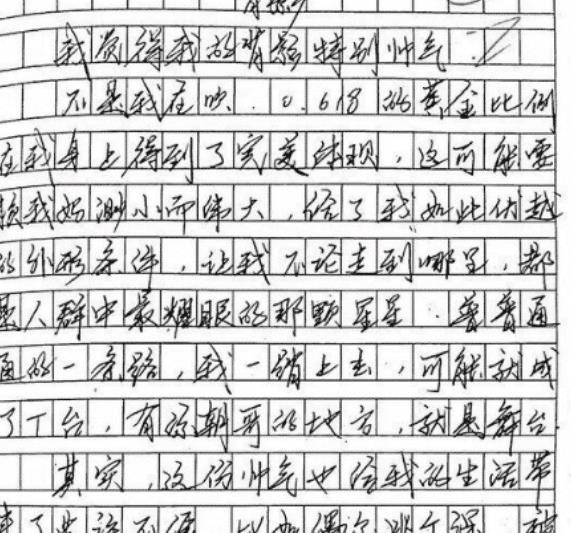 我觉得我的背影特别帅气。
不是我在吹。0.618的黄金比例
在我身上得到了完美体现，这可能要
我妈渺小而伟大，给了我如此优越
的外形条件，让我不论走到哪里，都
是人群中最耀眼的那颗星星。普普通
通的一条路，我一踏上去，可能就成
了T台，有孙朝哥的地方，就是舞台。
其实，这份帅气也给我的生活带
来了些许不便。比如偶尔